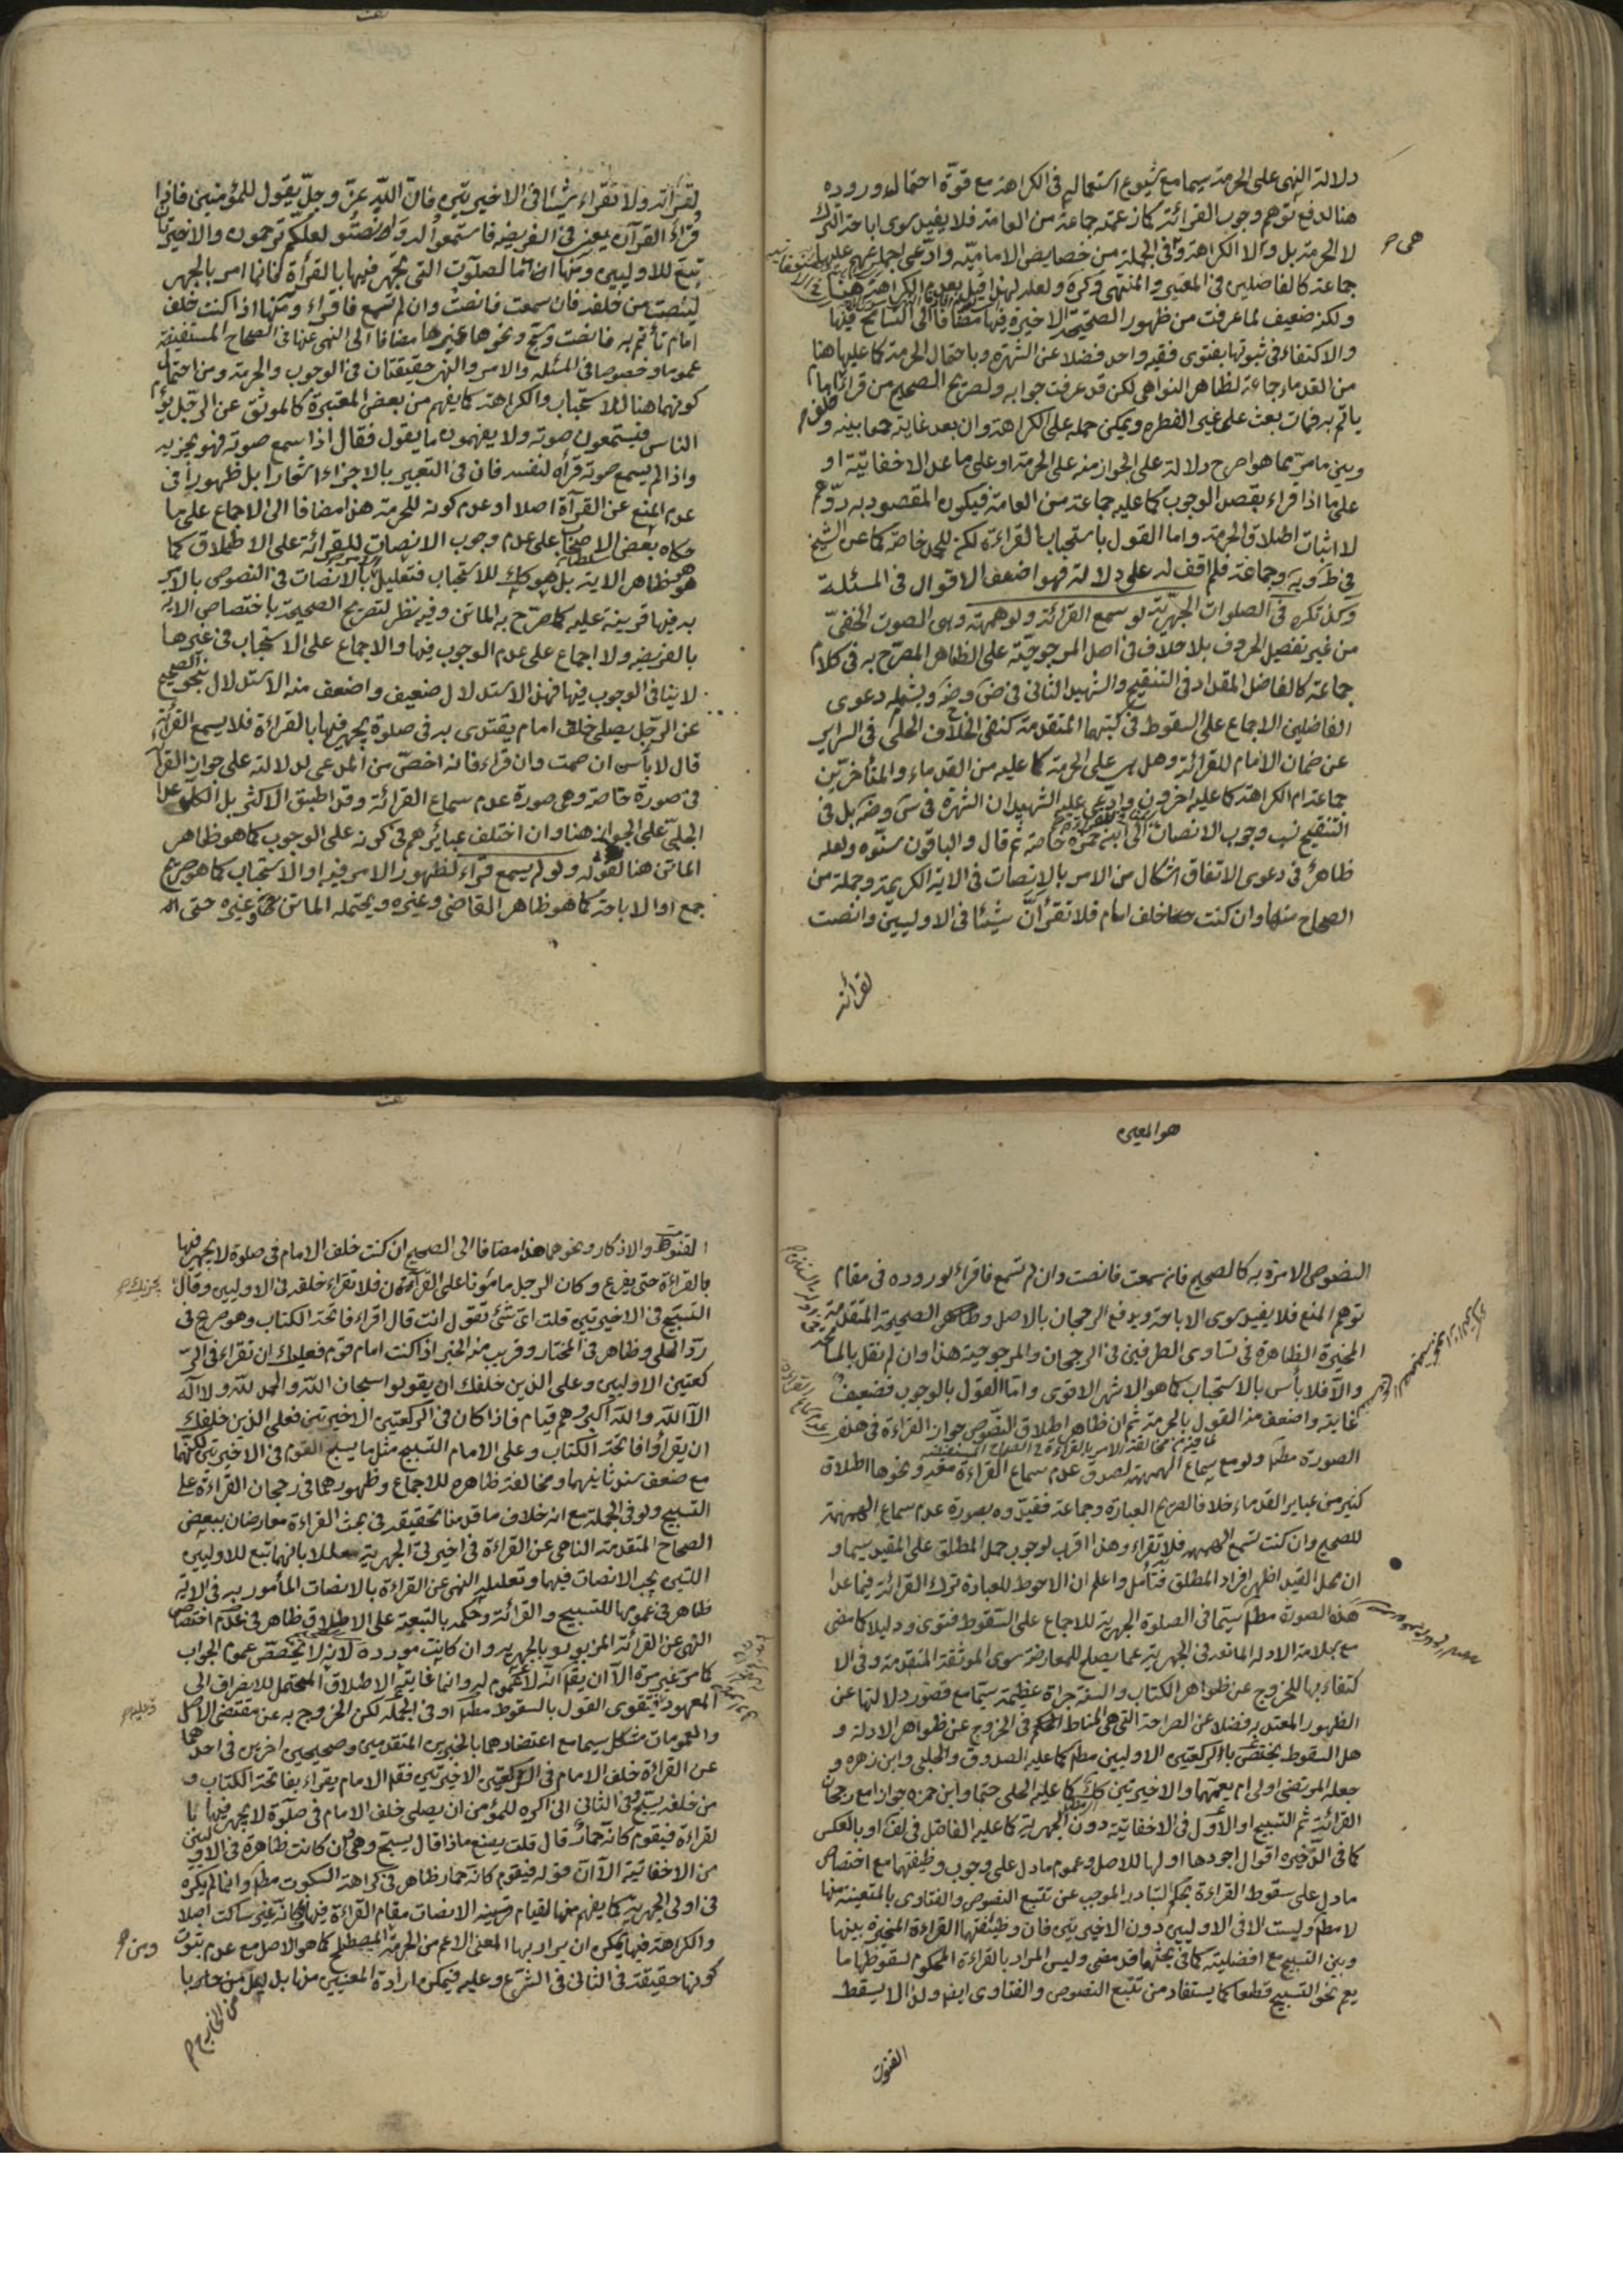 دلالة النهى على الحرمة سيما مع شيوع استعماله فى الكراهة مع قوة احتمال وروده
هنا لدفع توهم وجوب القرائة كما زعمته جماعة من العامة فلا يفيد سوى اباحة الترك
لا الحرمة بل ولا الكراهة وفى الجملة من خصايص الامامية وادعى اجماعهم عليها
جماعة كالفاضلين فى المعتبر والمنتهى وكره ولعله لهذا قيل بعدم الكراهة هنا
ولكنه ضعيف لما عرفت من ظهور الصحيحة الاخيرة فيها مضافا الى التسامح فيها
والاكتفاء فى ثبوتها بفتوى فقيه واحد فضلا عن الشهرة وباحتمال الحرمة كما عليها هنا
من القدماء جماعة لظاهر النواهى لكن قد عرفت جوابه ولصريح الصحيح من قرأ خلف امام
ياتم به فمات بعث على غير الفطرة ويمكن حمله على الكراهة وان بعد غاية جمعا بينه و
وبين ما مر مما هو اصرح دلالة على الجواز منه على الحرمة او على ما عدا الاخفاتية او
على ما اذا قراء بقصد الوجوب كما عليه جماعة من العامة فيكون المقصود به ردهم
لا اثبات اطلاق الحرمة واما القول باستحباب القراءة لكن للحمد خاصة كما عن الشيخ
فى ط وية وجماعة فلم اقف له على دلالة فهو اضعف الاقوال فى المسئلة
وكذا تكره فى الصلوات الجهرية لو سمع القرائة ولو همهمة وهى الصوت الخفى
من غير تفصيل الحروف بلا خلاف فى اصل المرجوحية على الظاهر المصرح به فى كلام
جماعة كالفاضل المقداد فى التنقيح والشهيد الثانى فى ض وضه ويشمله دعوى
الفاضلين الاجماع على السقوط فى كتبهما المتقدمة كنفى الخلاف الحلى فى السراير
عن ضمان الامام للقرائة وهل هى على الحرمة كما عليه من القدماء والمتأخرين
جماعة ام الكراهة كما عليه اخرون وادعى عليه الشهيدان الشهرة فى س وضه بل فى
التنقيح نسب وجوب الانصات الى ابن حمزة خاصة ثم قال والباقون سنوه ولعله
ظاهر فى دعوى الاتفاق اشكال من الامر بالانصات فى الاية الكريمة وجملة من
الصحاح منها وان كنت خلف امام فلا تقرأن شيئا فى الاوليين وانصت
لقرائته
لقرائته ولا تقراء شيئا فى الاخيرتين فان الله عز وجل يقول للمؤمنين فاذا
قرأ القرآن يعنى فى الفريضة فاستمعوا له وانصتوا لعلكم ترحمون والاخيرتان
تبع للاوليين ومنها اما الصلوة التى يجهر فيها بالقرأة فانما امر بالجهر
لينصت من خلفه فان سمعت فانصت وان لم تسمع فاقراء ومنها اذا كنت خلف
امام تأتم به فانصت وسبح ونحوها غيرها مضافا الى النهى عنها فى الصحاح المستفيضة
عموما وخصوصا فى المسئلة والامر والنهى حقيقتان فى الوجوب والحرمة ومن احتمال
كونهما هنا للاستحباب والكراهة كما يفهم من بعض المعتبرة كالموثق عن الرجل يؤم
الناس فيستمعون صوته ولا يفهمون ما يقول فقال اذا سمع صوته فهو يجزيه
واذا لم يسمع صوته قرأ لنفسه فان فى التعبير بالاجزاء اشعارا بل ظهورا فى
عدم المنع عن القرأة اصلا او عدم كونه للحرمة هذا مضافا الى الاجماع على ما
حكاه بعض الاصحاب على عدم وجوب الانصات للقرائة على الاطلاق كما
هو ظاهر الاية بل هو كك للاستحباب فتعليل بالانصات فى النصوص بالامر
به فيها قرينة عليه كما صرح به الماتن وفيه نظر لتصريح الصحيحة باختصاص الاية
بالفريضة ولا اجماع على عدم الوجوب فيها والاجماع على الاستحباب فى غيرها
لا ينافى الوجوب فيها فهذا الاستدلال ضعيف واضعف منه الاستدلال بنحو الصحيح
عن الرجل يصلى خلف امام يقتدى به فى صلوة يجهر فيها بالقراءة فلا يسمع القرأة
قال لا بأس ان صمت وان قراء فانه اخص من المدعى لدلالته على جواز القرأة
فى صورة خاصة وهى صورة عدم سماع القرائة وقد اطبق الاكثر بل الكل عدا
الحلى على الجواز هنا وان اختلف عبايرهم فى كونه على الوجوب كما هو ظاهر
الماتن هنا لقوله ولو لم يسمع قراء لظهور الامر فيه او الاستحباب كما هو صريح
جمع او الاباحة كما هو ظاهر القاضى وغيره ويحتمله الماتن وغيره حتى
هو المعين
النصوص الامرة به كالصحيح فان سمعت فانصت وان لم تسمع فاقراء لوروده فى مقام
توهم المنع فلا يفيد سوى الاباحة ويدفع الرجحان بالاصل وظاهر الصحيحة المتقدمة
المخيرة الظاهرة فى تساوى الطرفين فى الرجحان والمرجوحية هذا وان لم نقل بالمسامحة
والا فلا بأس بالاستحباب كما هو الاشهر الاقوى واما القول بالوجوب فضعيف
غايته واضعف منه القول بالحرمة ثم ان ظاهر اطلاق النصوص جواز القراءة فى هذه
لما فيه من مخالفة الامر بالقراءة فى الصحاح المستفيضة
الصورة مطلقا ولو مع سماع الهمهمة لصدق عدم سماع القراءة معه ونحوها اطلاق
كثير من عباير القدماء خلافا لصريح العبارة وجماعة فقيدوه بصورة عدم سماع الهمهمة
للصحيح وان كنت تسمع الهمهمة فلا تقراء وهذا اقرب لوجوب حمل المطلق على المقيد سيما و
ان محل القيد اظهر افراد المطلق فتأمل واعلم ان الاحوط للعبادة ترك القرائة فيما عدا
هذه الصورة مطم سيما فى الصلوة الجهرية للاجماع على السقوط فتوى ودليلا كما مضى
مع سلامة الادلة المانعة فى الجهرية عما يصلح للمعارضة سوى الموثقة المتقدمة وفى الا
كتفاء بها للخروج عن ظواهر الكتاب والسنة جراة عظيمة سيما مع قصور دلالتها عن
الظهور المعتد به فضلا عن الصراحة التى هى المناط المحكم فى الخروج عن ظواهر الادلة و
هل السقوط يختص بالركعتين الاوليين مطم كما عليه الصدوق والحلبى وابن زهره و
جعله المرتضى اولى ام يعمهما والاخيرتين كك كما عليه الحلى حتما وابن حمزه جوازا مع رجحان
القرائة ثم التسبيح او الاول فى الاخفاتية دون الجهرية كما عليه الفاضل فى لف او بالعكس
كما فى الذخيره اقوال اجودها اولها للاصل وعموم ما دل على وجوب وظيفتهما مع اختصاص
ما دل على سقوط القراءة بحكم التبادر الموجب عن تتبع النصوص والفتاوى بالمتعينة منها
لا مطم وليست الا فى الاوليين دون الاخيرتين فان وظيفتها القراءة المخيرة بينها
وبين التسبيح مع افضليته كما فى بحثها قد مضى وليس المراد بالقراءة المحكوم لسقوطها ما
يعم نحو التسبيح قطعا كما يستفاد من تتبع النصوص والفتاوى ايضا ولذا لا يسقط
القنوت
القنوت والاذكار ونحوها هذا مضافا الى الصحيح ان كنت خلف الامام فى صلوة لا يجهر فيها
بالقراءة حتى يفرغ وكان الرجل مامونا على القرآن فلا تقراء خلفه فى الاوليين وقال يجزيك
التسبيح فى الاخيرتين قلت اى شئ تقول انت قال اقراء فاتحة الكتاب وهو صريح فى
رد الحلى وظاهر فى المختار وقريب منه الخبر اذا كنت امام قوم فعليك ان تقراء فى الر
كعتين الاوليين وعلى الذين خلفك ان يقولوا سبحان الله والحمد لله ولا اله
الا الله والله اكبر وهم قيام فاذا كان فى الركعتين الاخيرتين فعلى الذين خلفك
ان يقراوا فاتحة الكتاب وعلى الامام التسبيح مثل ما يسبح القوم فى الاخيرتين لكنهما
مع ضعف سند ثانيهما ومخالفة ظاهره للاجماع وظهورهما فى رجحان القراءة على
التسبيح ولو فى الجملة مع انه خلاف ما قدمنا تحقيقه فى بحث القراءة معارضان ببعض
الصحاح المتقدمة الناهى عن القراءة فى اخيرتى الجهرية معللا بانهما تبع للاوليين
اللتين يجب الانصات فيهما وتعليله النهى عن القراءة بالانصات المأمور به فى الاية
ظاهر فى عمومها للتسبيح والقرائة وحكمه بالتبعية على الاطلاق ظاهر فى عدم اختصاص
النهى عن القرائة المزبورة بالجهرية وان كانت مورده لانه لا يخصص عموم الجواب
كما مر غير مرة الا ان يقال انه لا عموم له وانما غايته الاطلاق المحتمل للانصراف الى
المعهود فيقوى القول بالسقوط مطم او فى الجملة لكن الخروج به عن مقتضى الاصل
والعمومات مشكل سيما مع اعتضادهما بالخبرين المتقدمين وصحيحين اخرين فى احدهما
عن القرائة خلف الامام فى الركعتين الاخيرتين فقال الامام يقراء بفاتحة الكتاب و
من خلفه يسبح وفى الثانى انى اكره للمؤمن ان يصلى خلف الامام فى صلوة لا يجهر فيها با
لقراءة فيقوم كانه حمار قال قلت يصنع ماذا قال يسبح وهى وان كانت ظاهرة فى الاوليين
من الاخفاتية الا ان قوله فيقوم كانه حمار ظاهر فى كراهة السكوت مطم وانما لم يكره
فى اولى الجهرية كما يفهم منها لقيام قرينة الانصات مقام القراءة فيها فكانه غير ساكت اصلا
والكراهة فيها يمكن ان يراد بها المعنى الاعم من الحرمة المصطلح كما هو الاصل مع عدم ثبوت
كونها حقيقة فى الثانى فى الشرع وعليه فيمكن ارادة المعنيين منها بل لعل